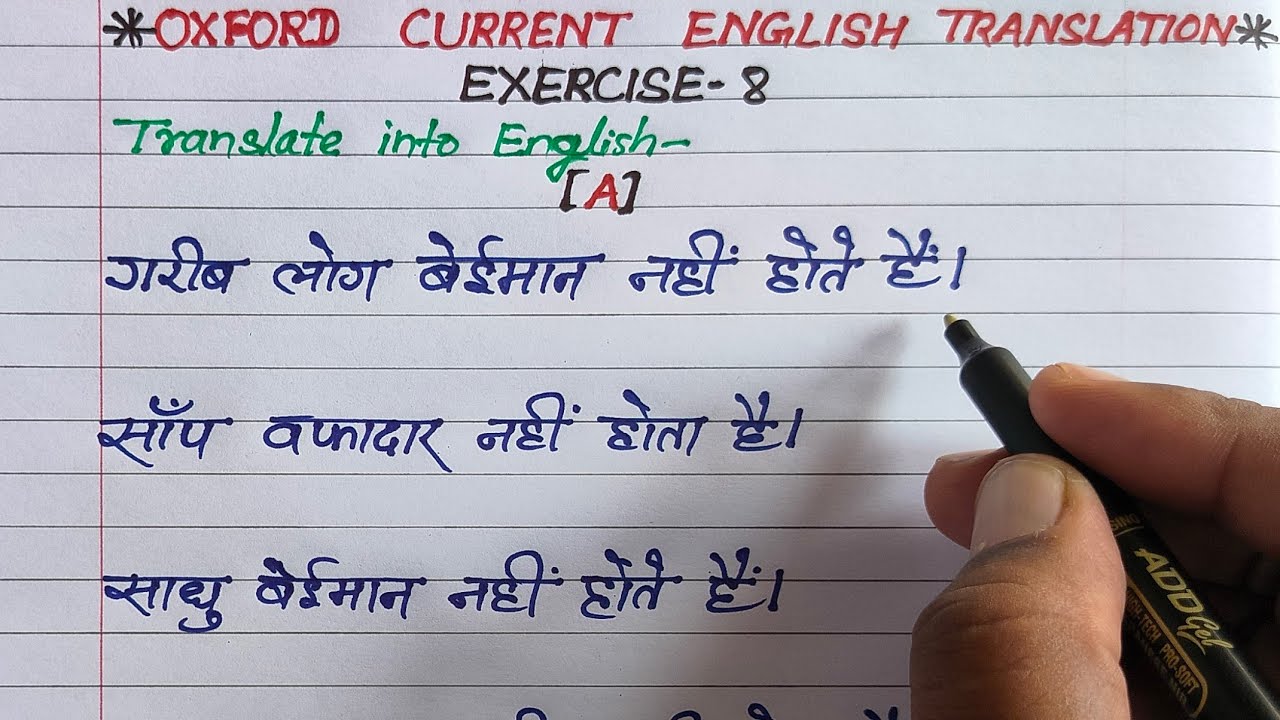 *OXFORD CURRENT ENGLISH TRANSLATION*
EXERCISE-8
Translate into English-
[A]
गरीब लोग बेईमान नहीं होते हैं।
साँप वफादार नहीं होता है।
साधु बेईमान नहीं होते हैं।
ADD Gel